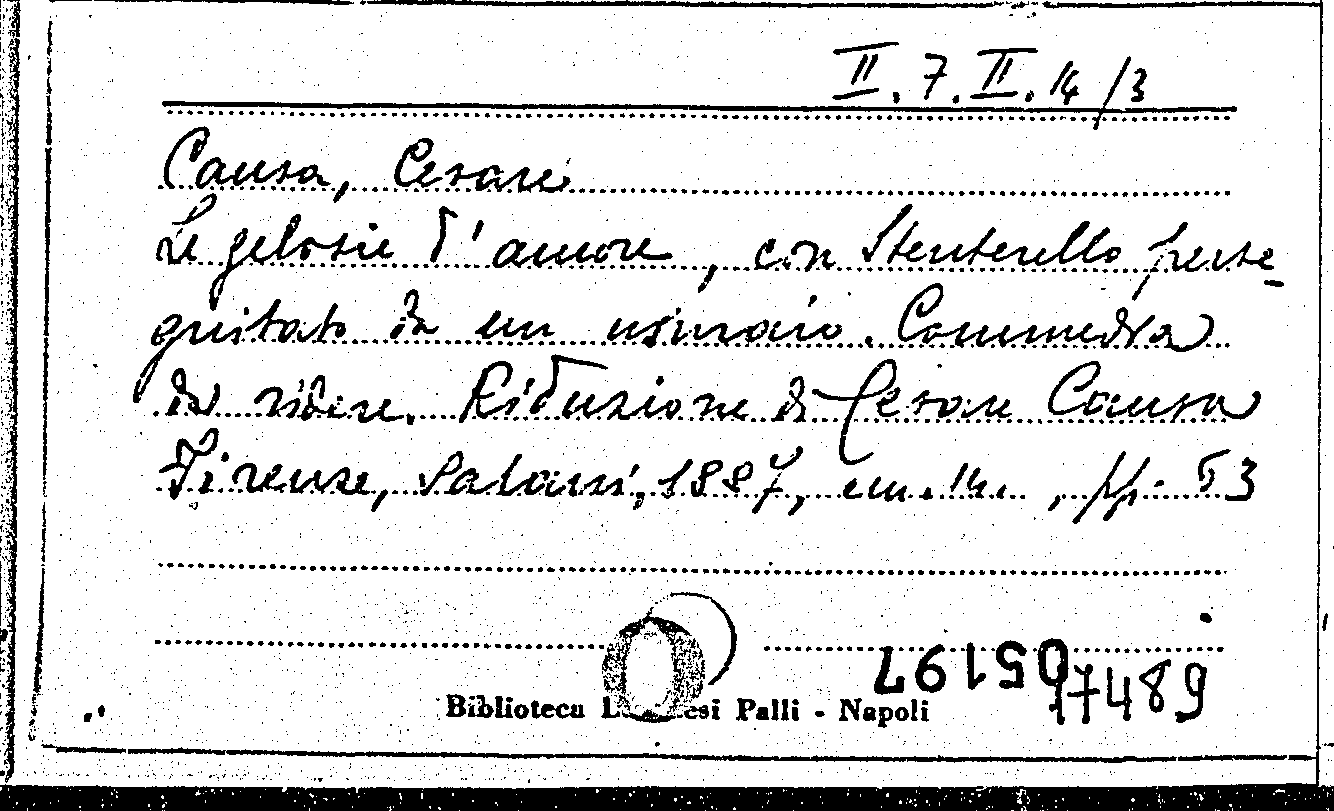 II. 7. II. 14/3
Causa, Cesare
Le gelosie d'amore, con Stenterello perse-
guitato da un usuraio. Commedia
da ridere. Riduzione di Cesare Causa
Firenze, Salani, 1887, cm. 14. , pp. 53
Biblioteca L esi Palli - Napoli
17489
05197